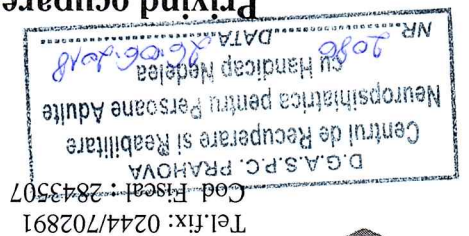 Tel.fix: 0244/702891
Cod Fiscal : 2843507
D.G.A.S.P.C. PRAHOVA
Centrul de Recuperare si Reabilitare
Neuropsihiatrica pentru Persoane Adulte
cu Handicap Nedelea
NR. 2086 DATA 26.06.2018
Privind ocupare